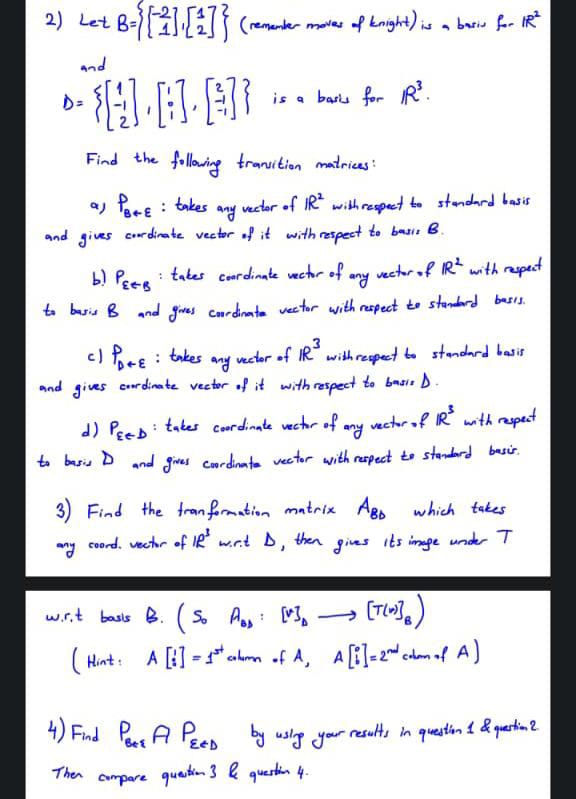 2) Let B={[-2 1],[1 2]} (remember moves of knight) is a basis for IR²
and
D= {[1 -1 2], [1 0 1], [2 -1 -1]} is a basis for IR³.
Find the following transition matrices:
a) P_B←E : takes any vector of IR² with respect to standard basis
and gives coordinate vector of it with respect to basis B.
b) P_E←B : takes coordinate vector of any vector of IR² with respect
to basis B and gives coordinate vector with respect to standard basis.
c) P_D←E : takes any vector of IR³ with respect to standard basis
and gives coordinate vector of it with respect to basis D.
d) P_E←D : takes coordinate vector of any vector of IR³ with respect
to basis D and gives coordinate vector with respect to standard basis.
3) Find the tranformation matrix A_BD which takes
any coord. vector of IR³ w.r.t D, then gives its image under T
w.r.t basis B. (So A_BD : [v]_D → [T(v)]_B)
(Hint: A[ ] = 1st column of A, A[ ]=2nd column of A)
4) Find P_B←E A P_E←D by using your results in question 1 & question 2.
Then compare question 3 & question 4.